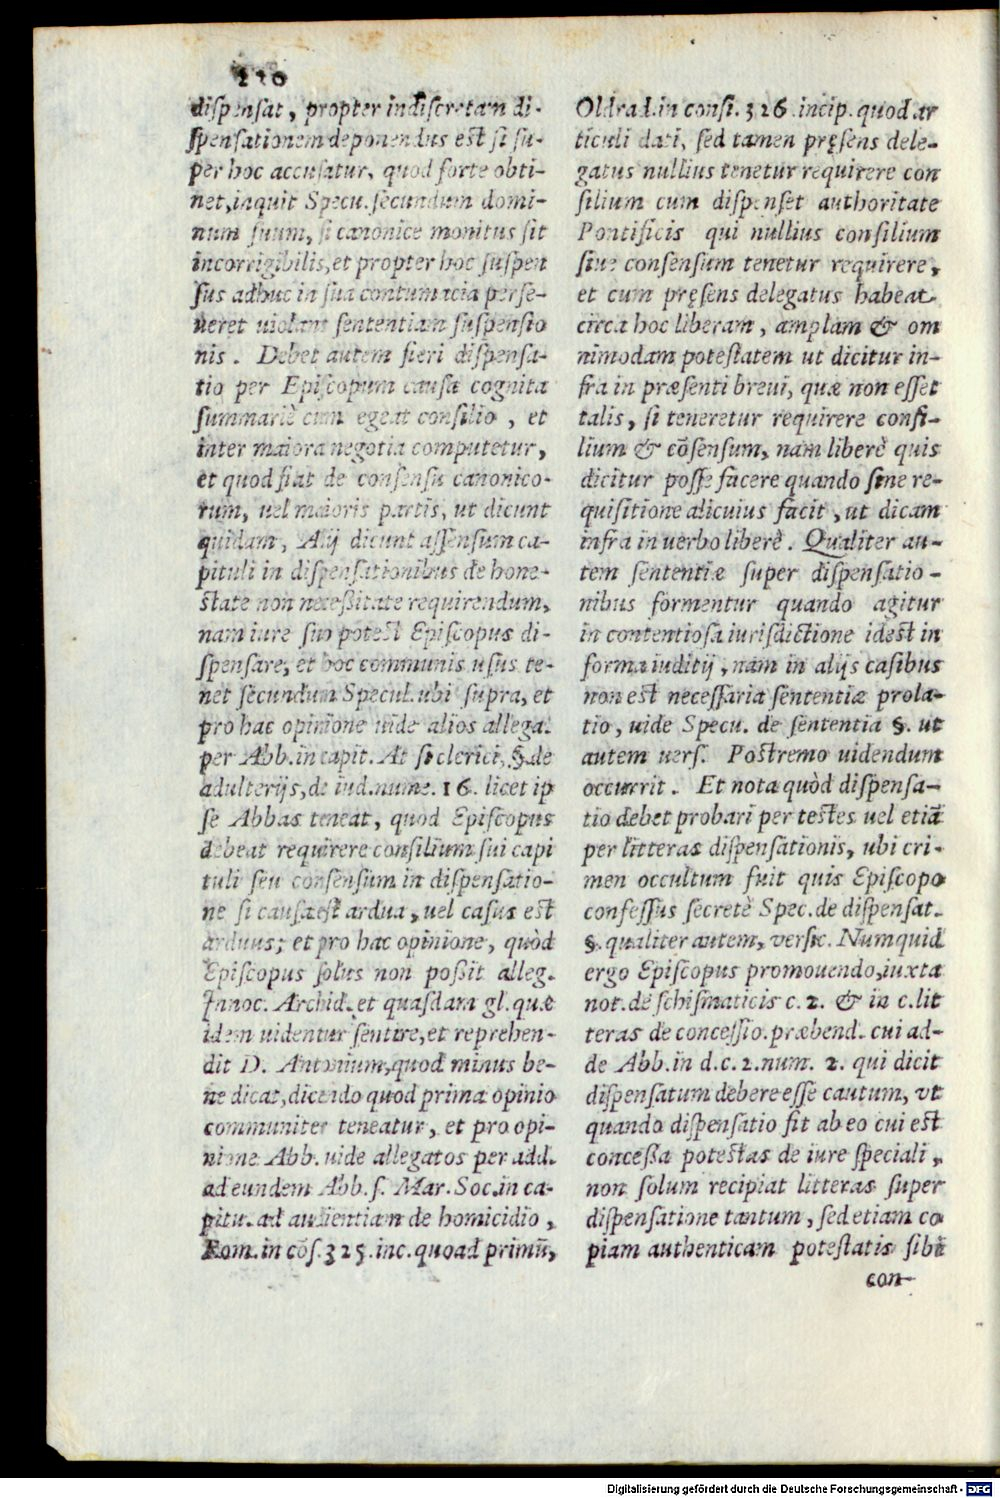 110
dispensat, propter indiscretam di-
spensationem deponendus est si su-
per hoc accusatur, quod forte obti-
net, inquit Specu. secundum domi-
num suum, si canonice monitus sit
incorrigibilis, et propter hoc suspen
sus adhuc in sua contumacia perse-
ueret uiolans sententiam suspensio
nis. Debet autem fieri dispensa-
tio per Episcopum causa cognita
summariè cum egeat consilio, et
inter maiora negotia computetur,
et quod fiat de consensu canonico-
rum, uel maioris partis, ut dicunt
quidam, Alij dicunt assensum ca-
pituli in dispensationibus de hone-
state non neceßitate requirendum,
nam iure suo potest Episcopus di-
spensare, et hoc communis usus te-
net secundum Specul. ubi supra, et
pro hac opinione uide alios allega.
per Abb. in capit. At si clerici, §. de
adulterijs, de iud. nume. 16. licet ip
se Abbas teneat, quod Episcopus
debeat requirere consilium sui capi
tuli seu consensum in dispensatio-
ne si causa est ardua, uel casus est
arduus; et pro hac opinione, quòd
Episcopus solus non poßit alleg.
Innoc. Archid. et quasdam gl. quæ
idem uidentur sentire, et reprehen-
dit D. Antonium, quod minus be-
ne dicat, dicendo quod prima opinio
communiter teneatur, et pro opi-
nione Abb. uide allegatos per add.
ad eundem Abb. s. Mar. Soc. in ca-
pitu. ad audientiam de homicidio,
Rom. in cōs. 325. inc. quoad primū,
Oldrad. in consi. 326. incip. quod ar
ticuli dati, sed tamen pręsens dele-
gatus nullius tenetur requirere con
silium cum dispenset authoritate
Pontificis qui nullius consilium
siue consensum tenetur requirere,
et cum pręsens delegatus habeat
circa hoc liberam, amplam & om
nimodam potestatem ut dicitur in-
fra in præsenti breui, quæ non esset
talis, si teneretur requirere consi-
lium & cōsensum, nam liberè quis
dicitur posse facere quando sine re-
quisitione alicuius facit, ut dicam
infra in uerbo liberè. Qualiter au-
tem sententiæ super dispensatio-
nibus formentur quando agitur
in contentiosa iurisdictione idest in
forma iuditij, nam in alijs casibus
non est necessaria sententiæ prola-
tio, uide Specu. de sententia §. ut
autem uers. Postremo uidendum
occurrit. Et nota quòd dispensa-
tio debet probari per testes uel etiā
per litteras dispensationis, ubi cri-
men occultum fuit quis Episcopo
confessus secretè Spec. de dispensat.
§. qualiter autem, versic. Numquid
ergo Episcopus promouendo, iuxta
not. de schismaticis c. 2. & in c. lit
teras de concessio. præbend. cui ad-
de Abb. in d. c. 2. num. 2. qui dicit
dispensatum debere esse cautum, vt
quando dispensatio fit ab eo cui est
conceßa potestas de iure speciali,
non solum recipiat litteras super
dispensatione tantum, sed etiam co
piam authenticam potestatis sibi
con-
Digitalisierung gefördert durch die Deutsche Forschungsgemeinschaft - DFG